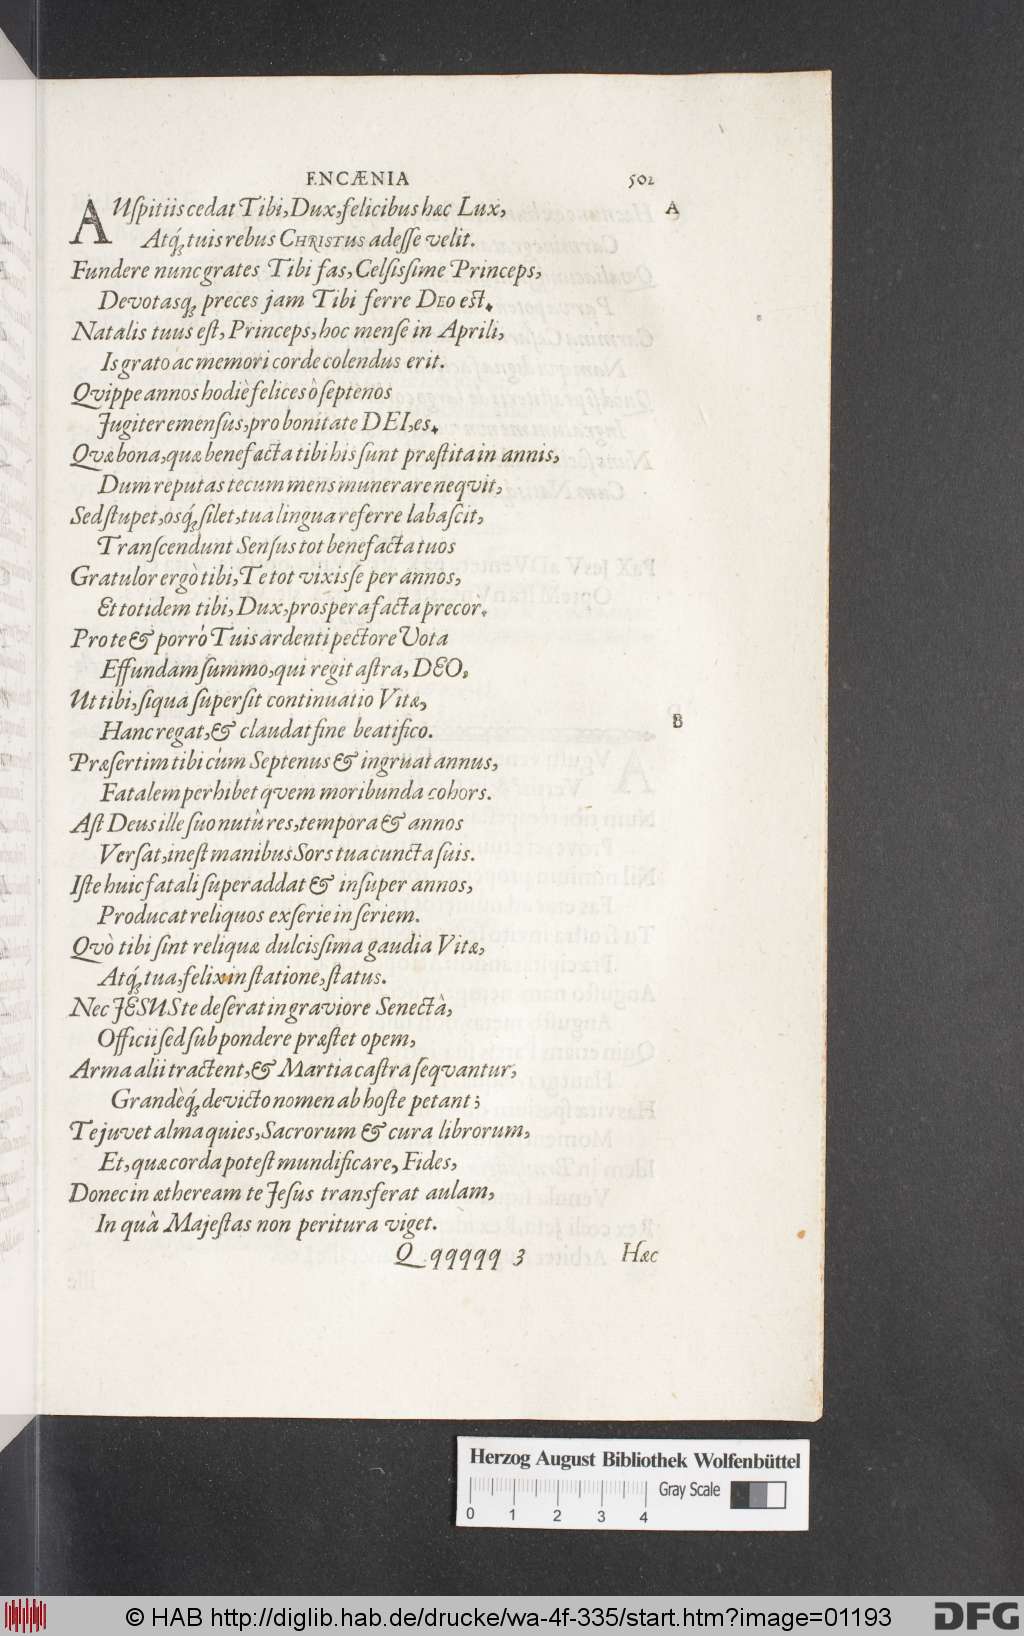 ENCÆNIA 502
AUſpitiis cedat Tibi, Dux, felicibus hæc Lux, A
Atq́ꝫ tuis rebus CHRISTUS adeſſe velit.
Fundere nunc grates Tibi fas, Celſiſſime Princeps,
Devotasqꝫ preces jam Tibi ferre DEO eſt.
Natalis tuus eſt, Princeps, hoc menſe in Aprili,
Is grato ac memori corde colendus erit.
Qvippe annos hodiè felices ò ſeptenos
Jugiter emenſus, pro bonitate DEI, es.
Qvæ bona, quæ benefacta tibi his ſunt præſtita in annis,
Dum reputas tecum mens munerare neqvit,
Sed ſtupet, osq́ꝫ ſilet, tua lingua referre labaſcit,
Tranſcendunt Senſus tot benefacta tuos
Gratulor ergò tibi, Te tot vixiſſe per annos,
Et totidem tibi, Dux, prospera facta precòr.
Pro te & porrò Tuis ardenti pectore Vota
Effundam ſummo, qui regit aſtra, DEO,
Ut tibi, ſiqua ſuperſit continuatio Vitæ,
Hanc regat, & claudat fine beatifico. B
Præſertim tibi cùm Septenus & ingruat annus,
Fatalem perhibet qvem moribunda cohors.
Aſt Deus ille ſuo nutû res, tempora & annos
Verſat, ineſt manibus Sors tua cuncta ſuis.
Iſte huic fatali ſuperaddat & inſuper annos,
Producat reliquos exſerie in ſeriem.
Qvò tibi ſint reliquæ dulciſſima gaudia Vitæ,
Atq́ꝫ tua, felix in ſtatione, ſtatus.
Nec JESUS te deſerat in graviore Senectâ,
Officii ſed ſub pondere præſtet opem,
Arma alii tractent, & Martia caſtra ſeqvantur,
Grandèq́ꝫ devicto nomen ab hoſte petant;
Te juvet alma quies, Sacrorum & cura librorum,
Et, quæ corda poteſt mundificare, Fides,
Donec in ætheream te Jeſus transferat aulam,
In quâ Majeſtas non peritura viget.
Qqqqqq 3 Hæc
Herzog August Bibliothek Wolfenbüttel
Gray Scale
0 1 2 3 4
© HAB http://diglib.hab.de/drucke/wa-4f-335/start.htm?image=01193
DFG